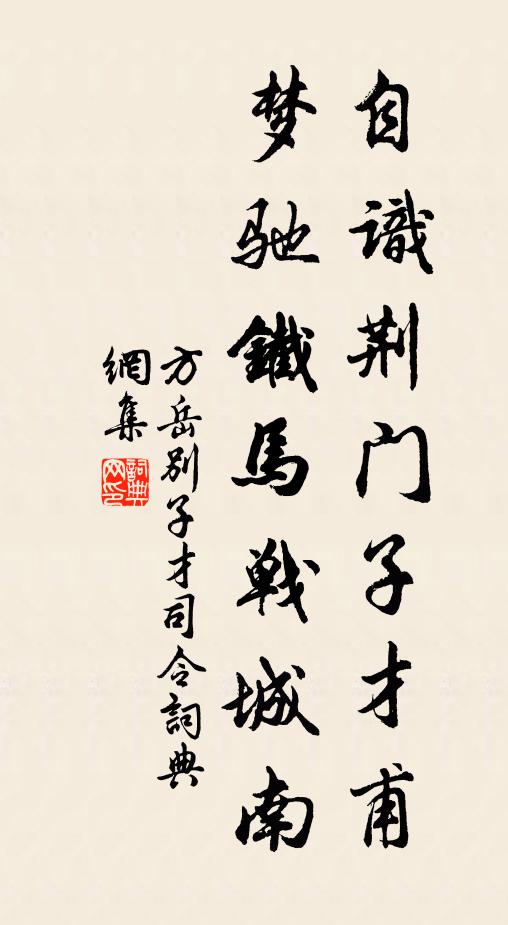 自識荆门子才甫
梦驰鐵馬戰城南
方岳别子才司令詞典
網集
詞典网印